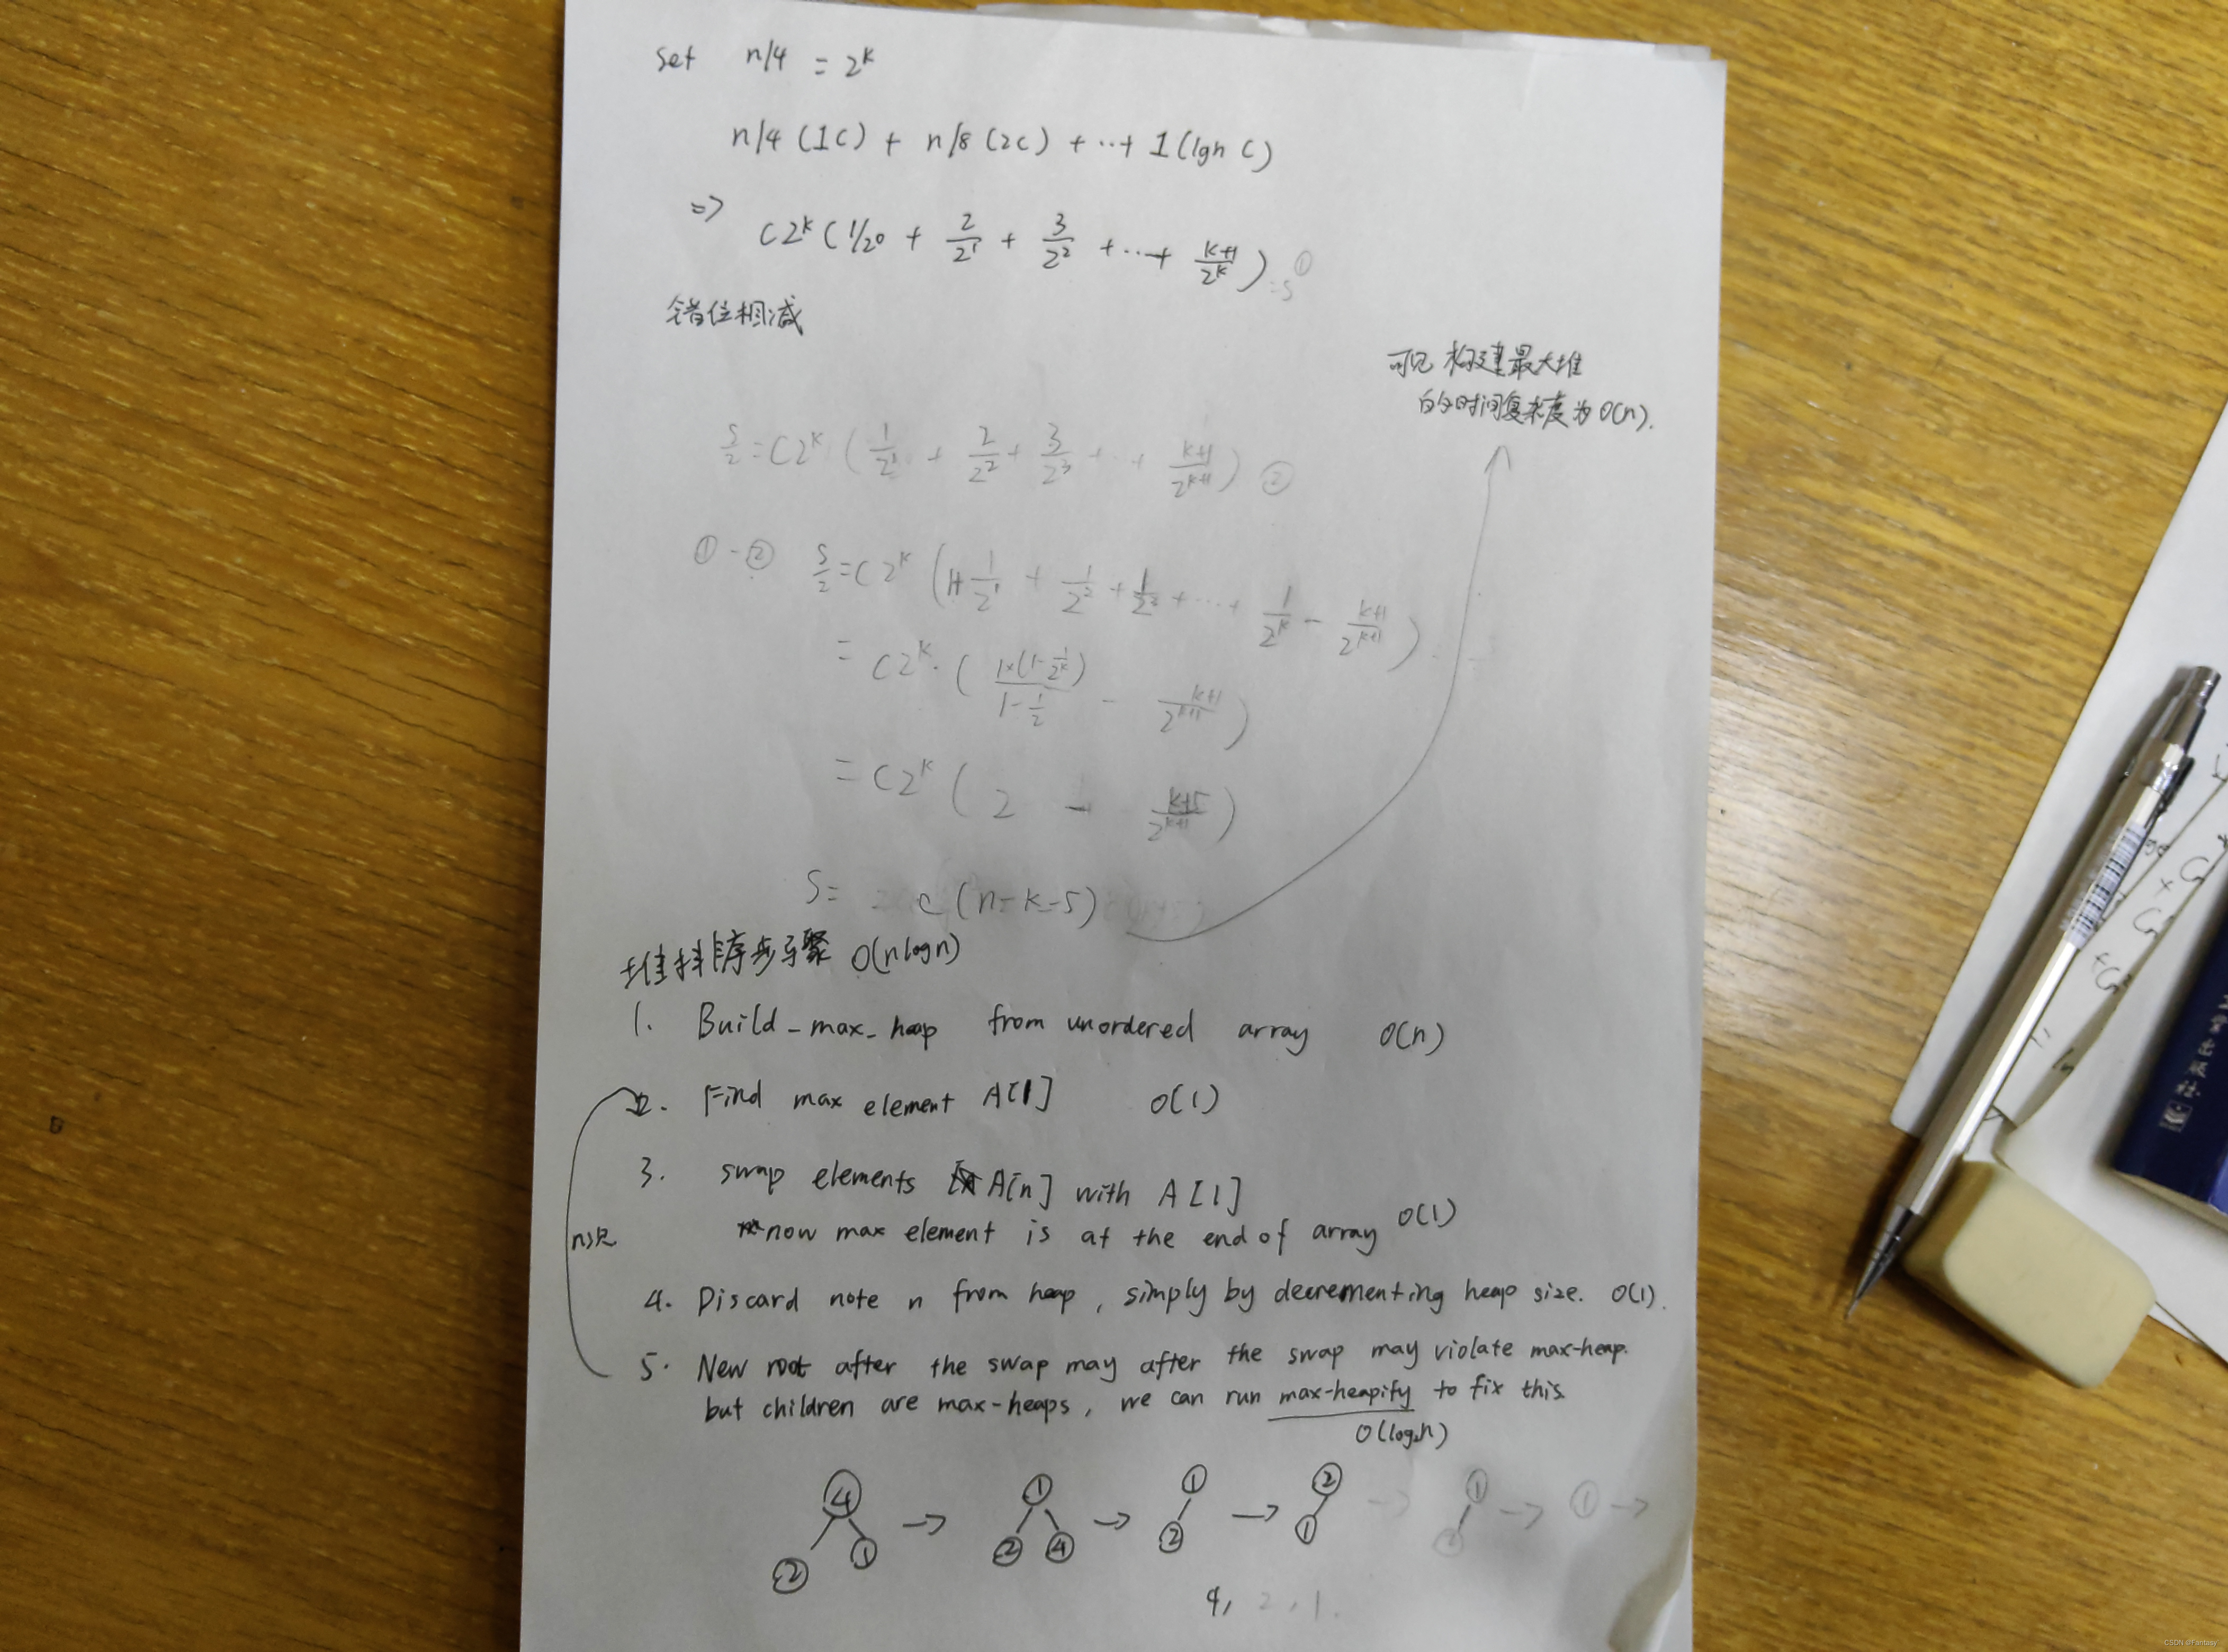 set n/4 = 2^k
n/4 (1c) + n/8 (2c) + ... + 1 (lgn c)
=> c2^k (1/2^0 + 2/2^1 + 3/2^2 + ... + k+1/2^k) = S ①
错位相减
可见 构建最大堆
的时间复杂度为 O(n).
S/2 = C2^k (1/2^1 + 2/2^2 + 3/2^3 + ... + k+1/2^(k+1)) ②
① - ② S/2 = C2^k (1+ 1/2^1 + 1/2^2 + 1/2^2 + ... + 1/2^k - k+1/2^(k+1))
= C2^k · (1×(1-1/2^k) / 1-1/2 - k+1/2^(k+1))
= C2^k (2 - k+5/2^(k+1))
S = c (n-k-5)
堆排序步骤 O(nlogn)
1. Build_max_heap from unordered array O(n)
2. Find max element A[1] O(1)
3. swap elements A[n] with A[1]
now max element is at the end of array O(1)
n次
4. Discard note n from heap, simply by decrementing heap size. O(1).
5. New root after the swap may after the swap may violate max-heap.
but children are max-heaps, we can run max-heapify to fix this.
O(log2n)
④ → ① → ① → ② → ① → ① →
② ① ② ④ ② ①
4, 2, 1.
CSDN @Fantasy